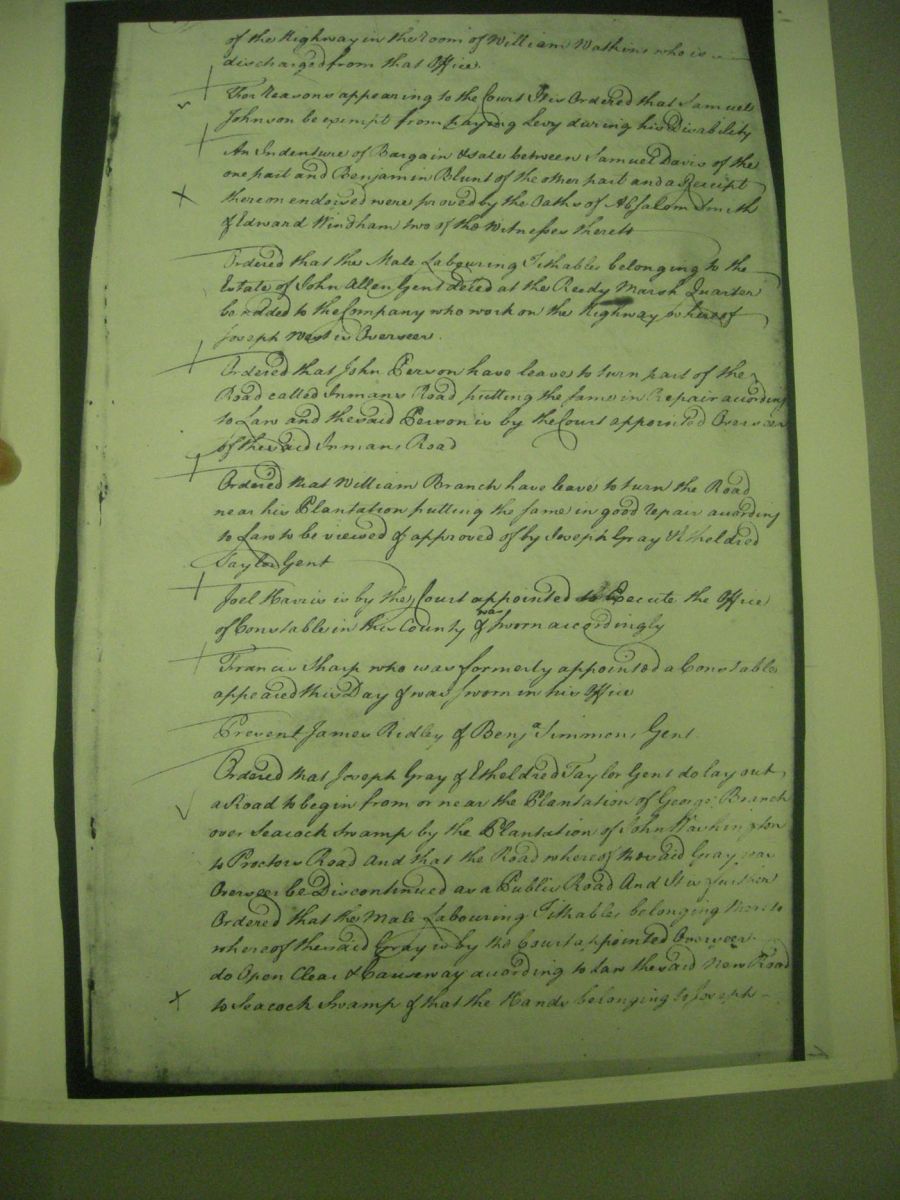 of the Highway in the room of William Watkins who is
discharged from that Office.
For Reasons appearing to the Court It is Ordered that Samuel
Johnson be exempt from paying Levy during his Disability
An Indenture of Bargain & sale between Samuel Davis of the
one part and Benjamin Blunt of the other part and a Receipt
thereon endorsed were proved by the Oaths of Absalom Smith
& Edward Windham two of the Witnesses thereto
Ordered that the Male Labouring Tithables belonging to the
Estate of John Allen Gent deced at the Reedy Marsh Quarter
be added to the Company who work on the Highway whereof
Joseph West is Overseer.
Ordered that John Person have leave to turn part of the
Road called Inmans Road putting the same in Repair according
to Law and the said Person is by the Court appointed Overseer
of the said Inmans Road
Ordered that William Branch have leave to turn the Road
near his Plantation putting the same in good repair according
to Law to be viewed & approved of by Joseph Gray & Etheldred
Taylor Gent
Joel Harris is by the Court appointed to Execute the Office
of Constable in this County & was sworn accordingly
Francis Sharp who was formerly appointed a Constable
appeared this Day & was sworn in his Office
Present James Ridley & Benja Simmons Gent.
Ordered that Joseph Gray & Etheldred Taylor Gent do lay out
a Road to begin from or near the Plantation of George Branch
over Seacock Swamp by the Plantation of John Washington
to Proctors Road And that the Road whereof the said Gray was
Overseer be Discontinued as a Public Road And It is further
Ordered that the Male Labouring Tithables belonging thereto
whereof the said Gray is by the Court appointed Overseer
do Open Clear & Causeway according to Law the said New Road
to Seacock Swamp & that the Hands belonging to Joseph